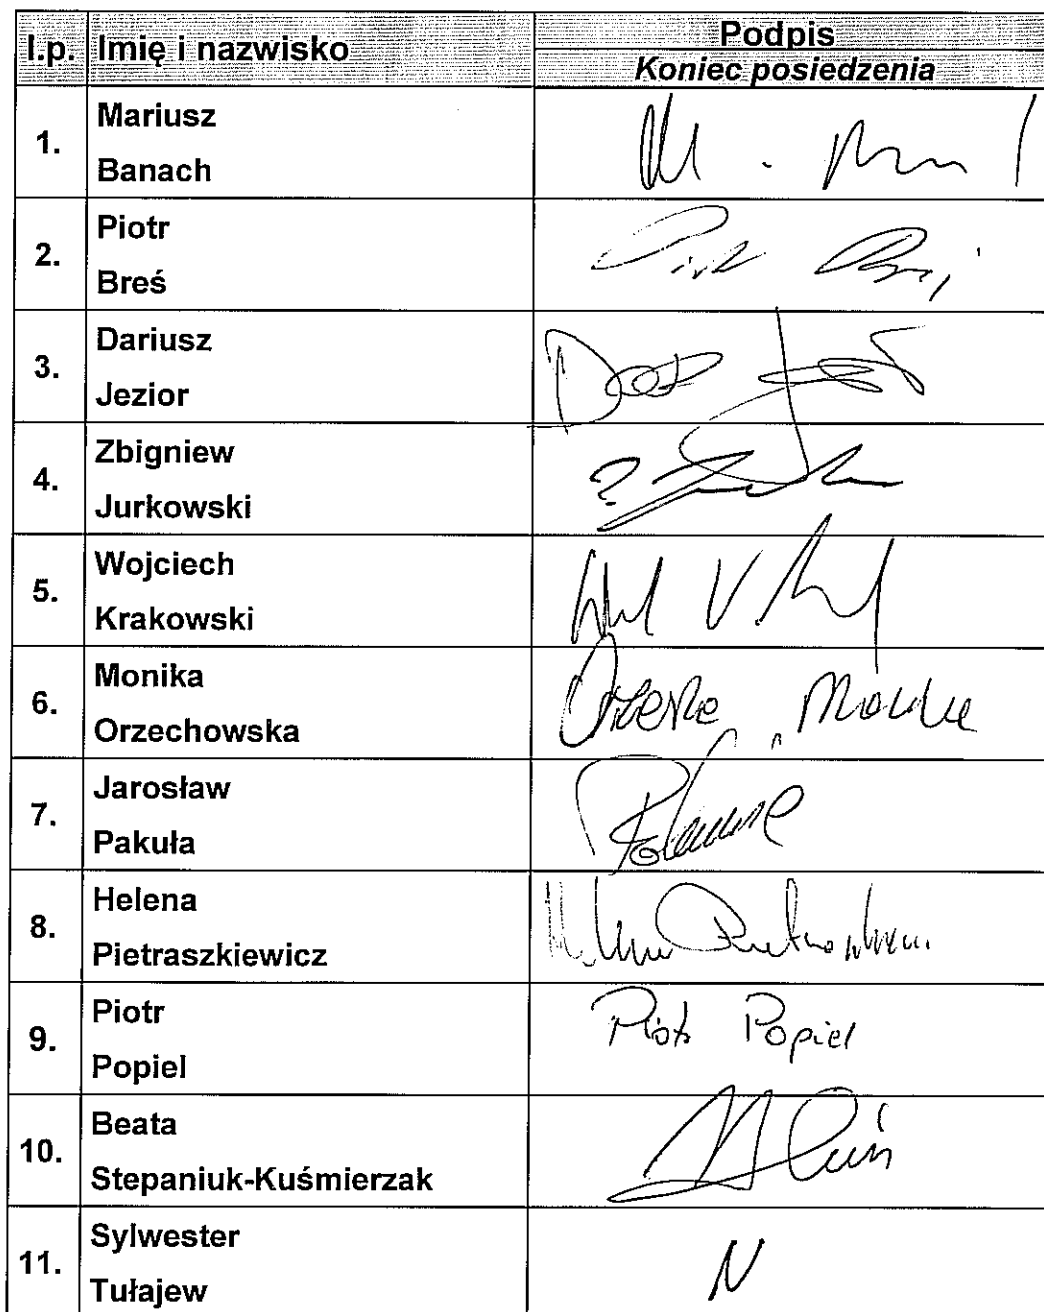 l.p. Imię i nazwisko Podpis
Koniec posiedzenia
1. Mariusz
Banach
2. Piotr
Breś
3. Dariusz
Jezior
4. Zbigniew
Jurkowski
5. Wojciech
Krakowski
6. Monika
Orzechowska
7. Jarosław
Pakuła
8. Helena
Pietraszkiewicz
9. Piotr
Popiel
Piotr Popiel
10. Beata
Stepaniuk-Kuśmierzak
11. Sylwester
Tułajew
N